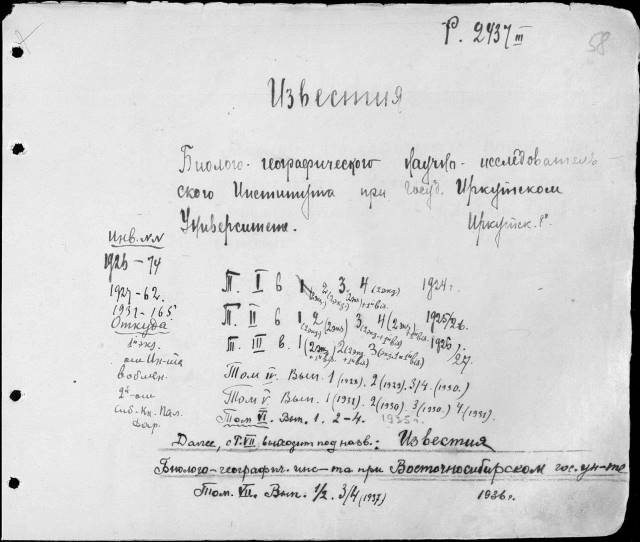 Р. 2437 III
58
Известия
Биолого-географического Научно-исследователь-
ского Института при Госуд. Иркутском
Университете. Иркутск. 8°.
Инв. №№
1926 – 74
1927 – 62.
1931 – 165
Откуда
1й экз.
от Ин-та
в обмен.
2й – от
Сиб. Кн. Пал.
Дар.
Т. I в 1 2 3. 4 (2 экз) 1924 г.
Т. II в 1 2 (2 экз) 3 4 (2 экз) 1925/26.
Т. III в. 1 (2 экз) 2 (2 экз) 3 1926/27.
Том IV. Вып. 1 (1928). 2 (1929). 3/4. (1930.)
Том V. Вып. 1 (1931). 2 (1930). 3 (1930.) 4 (1931).
Том VI. Вып. 1. 2-4. 1935 г.
Далее, с Т. VII. выходит под назв.: Известия
Биолого-географич. инс-та при Восточносибирском гос. ун-те
Том. VII. Вып. 1/2. 3/4 (1937) 1936 г.